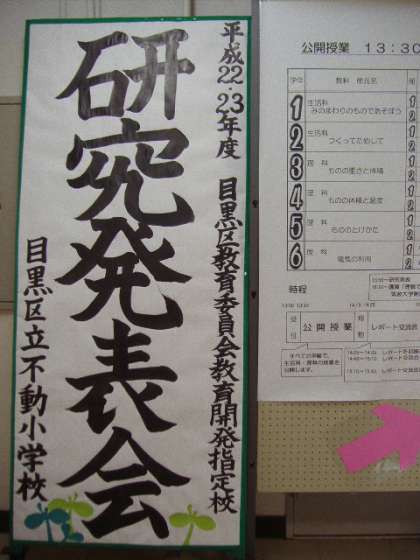 平成22・23年度 目黒区教育委員会教育開発指定校
研究発表会
目黒区立不動小学校
公開授業 13:30
学年 教科 単元名
1 生活科
みのまわりのものであそぼう
2 生活科
つくってためして
3 理科
ものの重さと体積
4 理科
ものの体積と温度
5 理科
もののとけかた
6 理科
電気の利用
時程
受付 公開授業 移動 レポート交流